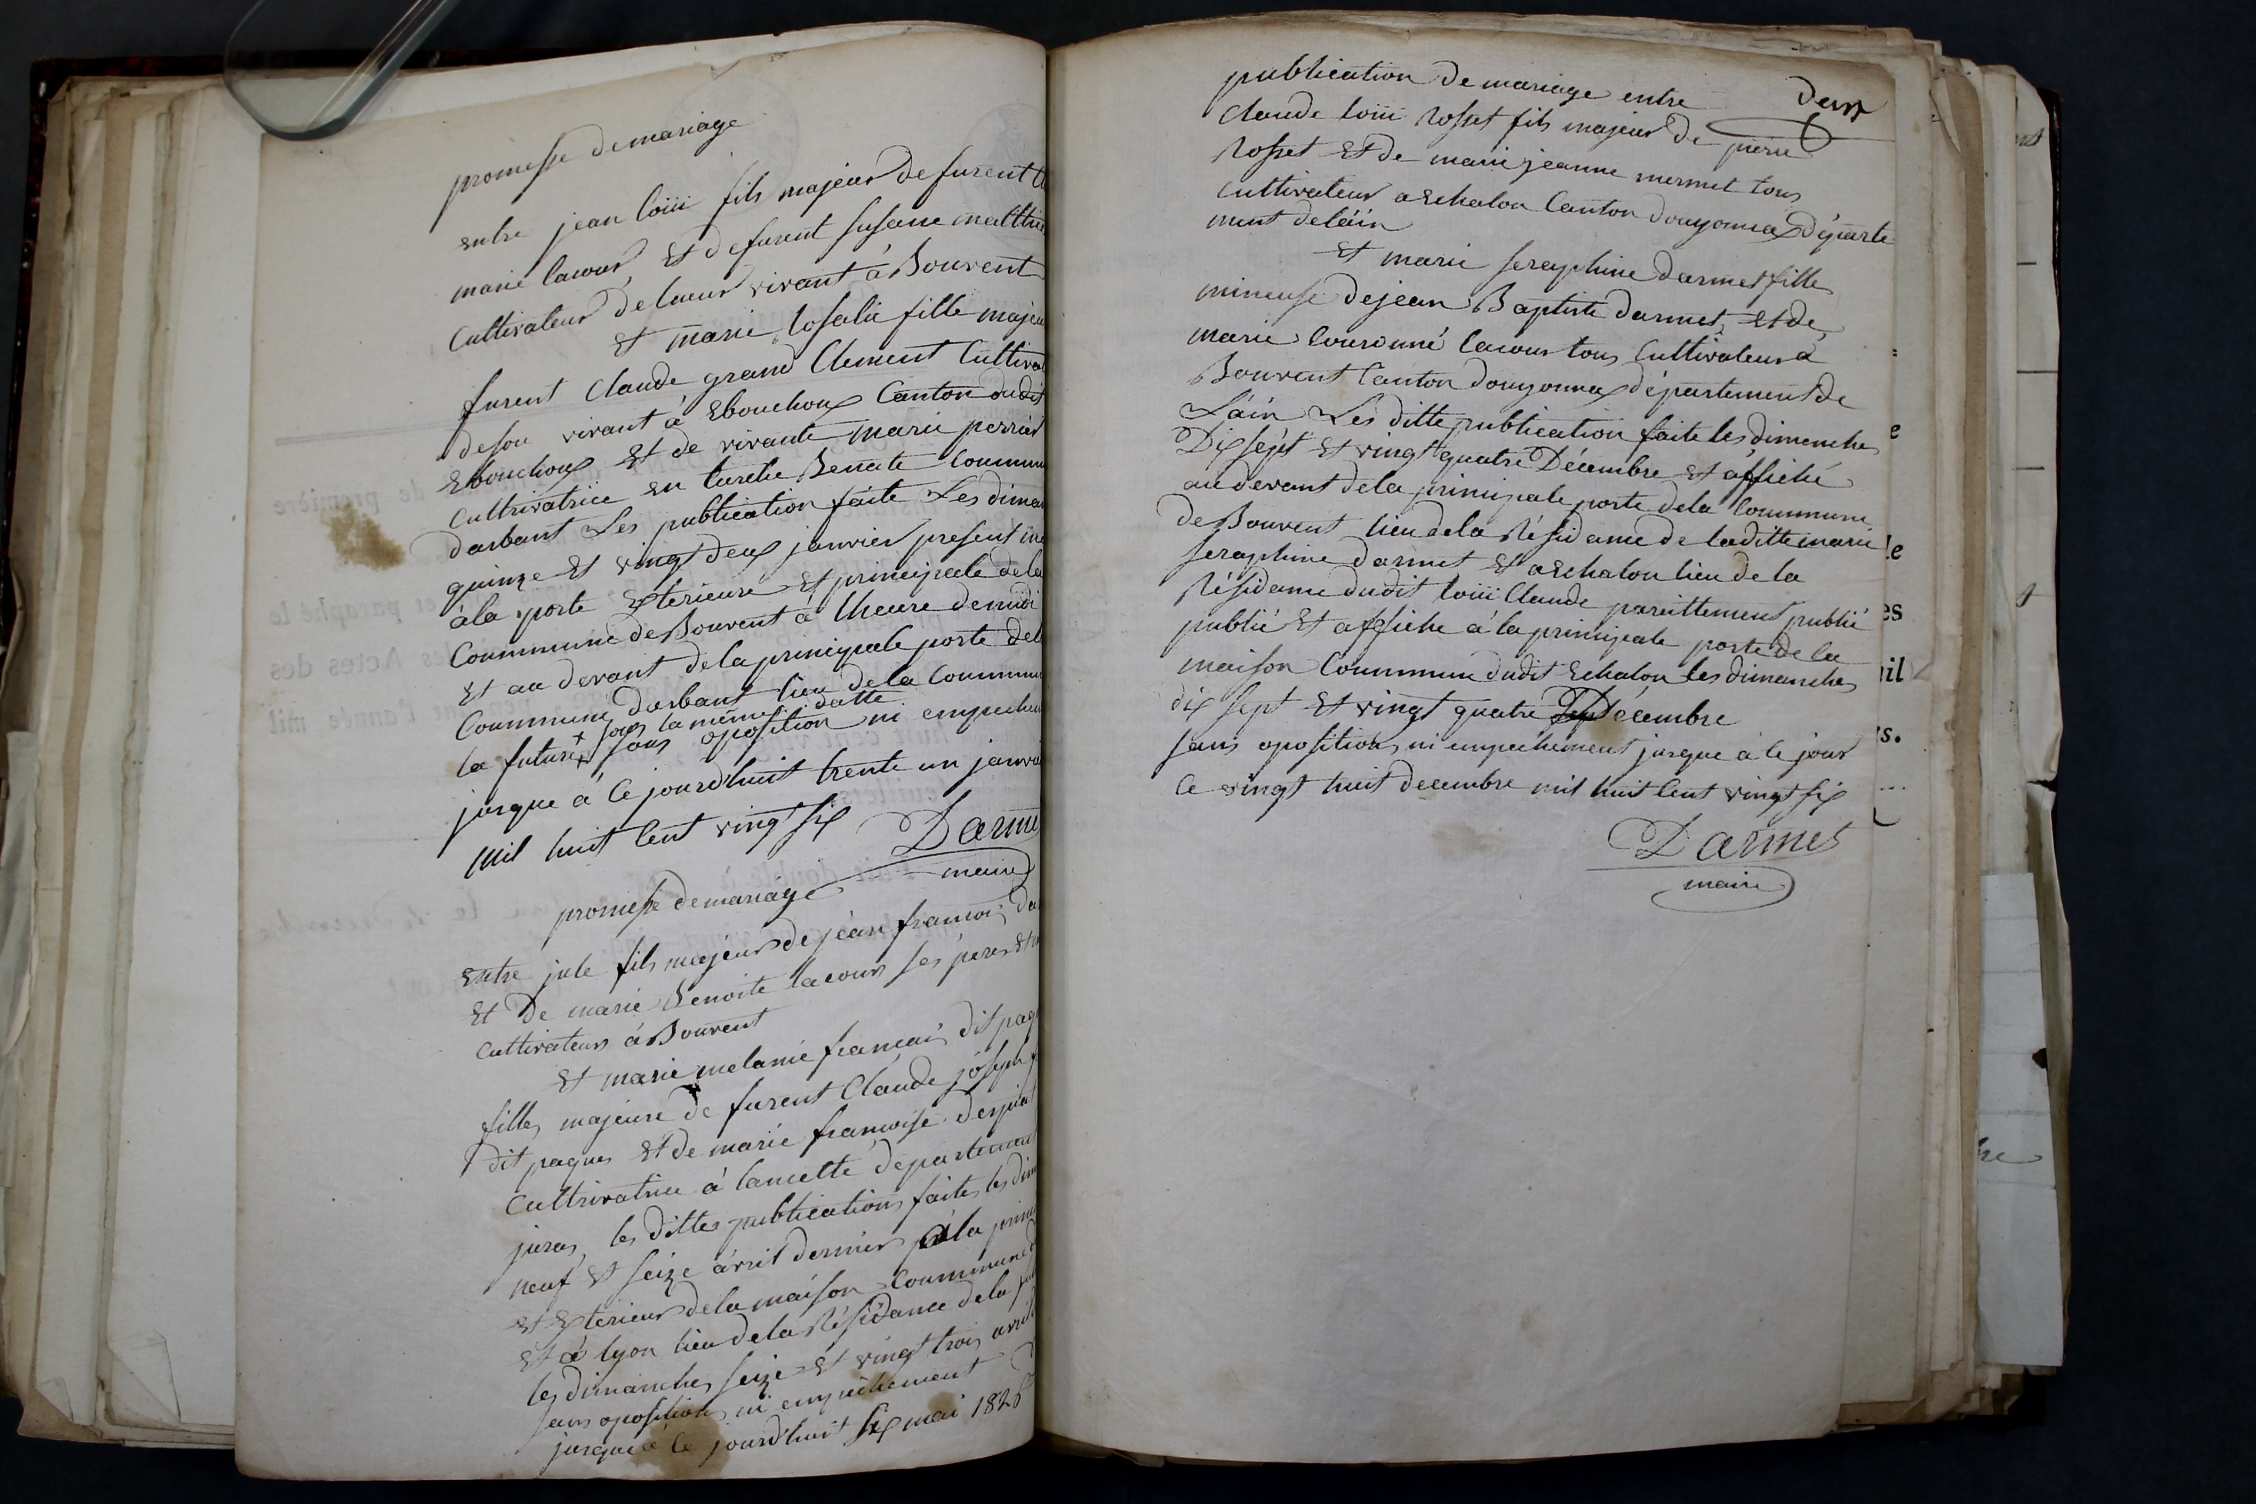 promesse de mariage
entre jean loüi fils majeur de furent
marie lacour, et de furent susanne matthie
cultivateur de lacour vivant à Bouvent
et marie Rosalie fille majeu
furent Claude grand Clement Cultivat
de son vivant à Ebouchoux Canton dudit
Ebouchoux et de vivante marie perrier
Cultivatrice en Benoite commun
darbant Les publication faite Les diman
quinze et vingt deux janvier present
à la porte exterieure et principale de la
Commune de Bouvent à lheure de midi
et au devant de la principale porte de l
Commune darbant lieu de la Commun
+ sous la même datte
la future + sans oposition ni empeche
jusque à ce jourd'huit trente un janvi
mil huit Cent vingt six Darme
maire
promesse de mariage
entre jule fils majeur de jean francois da
et De marie Benoite lacour ses peres et
cultivateurs à Bouvent
et marie melanie francais dit paq
fille majeure de furent Claude joseph f
dit paques et de marie francoise
Cultrivatrice à lancette departement
juras, les dittes publications faites les dim
neuf et seize avril dernier à la princi
et exterieur de la maison Commune
et à lyon lieu de la Résidance de la fu
les dimanches seize et vingt trois avril
sans oposition ni empechement
jusque à ce jourd'huit six mai 1826
deux
publication de mariage entre
Claude loüi Rosset fils majeur de pierre
Rosset et de marie jeanne mermet tous
cultivateur a Echalon Canton douyonnax Départe
ment de láin
et marie seraphine darmet fille
mineuse de jean Baptiste darmet, et de
marie Couronné lacour tous Cultivateur à
Bouvent Canton douyonnax département de
Láin Les ditte publication faite les dimenche
Dix sept et vingt quatre Décembre et affiché
au devant de la principale porte de la Commune
de Bouvent lieu de la Résidance de laditte marie
seraphine darmet et a Echalon lieu de la
Résidance dudit loüi Claude pareillement publié
publié et affiche à la principale porte de la
maison Commune dudit Echalon les dimanches
dix sept et vingt quatre Décembre
sans oposition ni empechement jusque à ce jour
Ce vingt huit decembre mil huit Cent vingt six
Darmet
maire